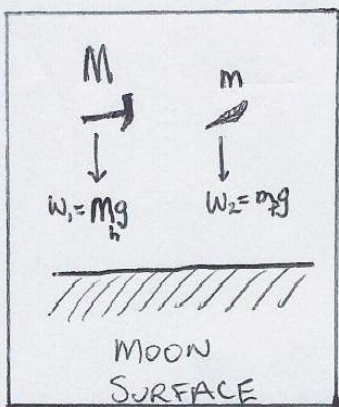 M m
W₁ = M_h g W₂ = m_f g
MOON
SURFACE